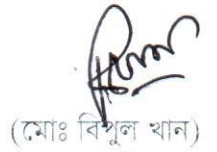 (মোঃ বিপুল খান)